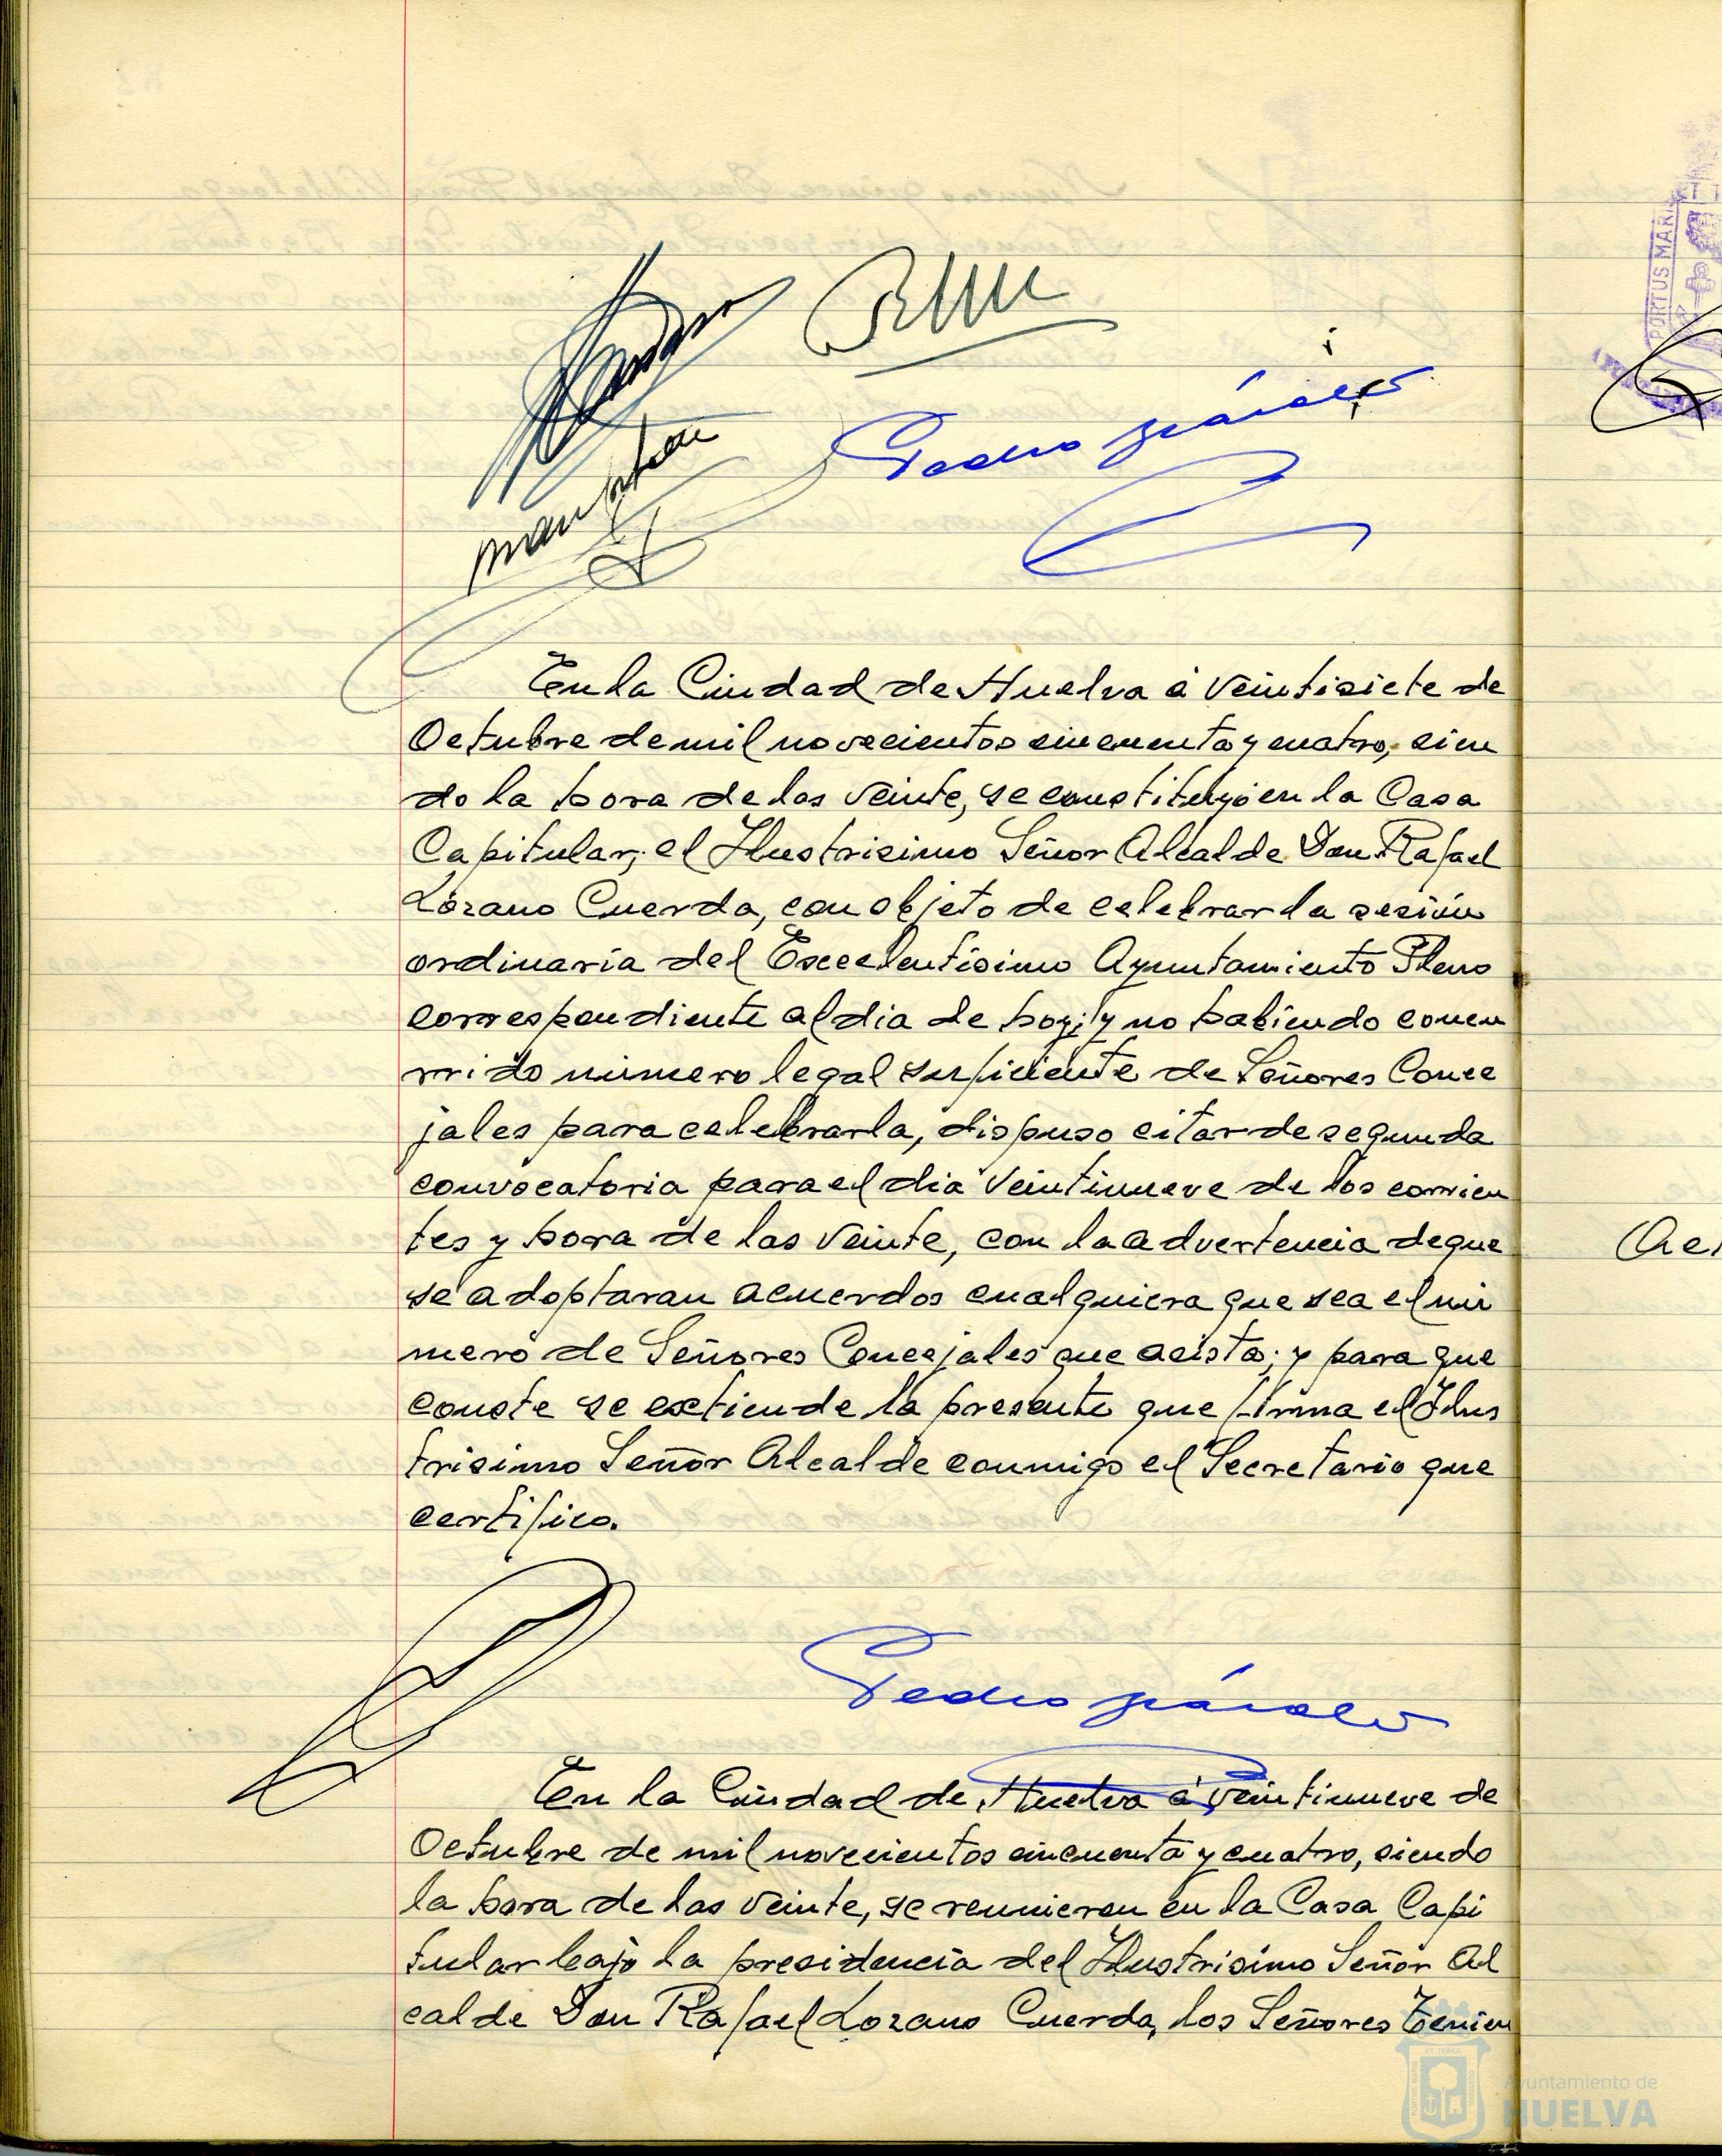 Pedro
En la Ciudad de Huelva á veintisiete de
Octubre de mil novecientos cincuenta y cuatro, sien
do la hora de las veinte, se constituyó en la Casa
Capitular, el Ilustrisimo Señor Alcalde Don Rafael
Lozano Cuerda, con objeto de celebrar la sesión
ordinaria del Excelentísimo Ayuntamiento Pleno
correspondiente al dia de hoy; y no habiendo concu
rrido número legal suficiente de Señores Conce
jales para celebrarla, dispuso citar de segunda
convocatoria para el dia veintinueve de los corrien
tes y hora de las veinte, con la advertencia de que
se adoptaran acuerdos cualquiera que sea el nú
mero de Señores Concejales que asista; y para que
conste se extiende la presente que firma el Ilus
trisimo Señor Alcalde conmigo el Secretario que
certifico.
Pedro
En la Ciudad de Huelva á veintinueve de
Octubre de mil novecientos cincuenta y cuatro, siendo
la hora de las veinte, se reunieron en la Casa Capi
tular bajo la presidencia del Ilustrisimo Señor Al
calde Don Rafael Lozano Cuerda, los Señores Tenien
PORTUS MARIS
Ayuntamiento de
HUELVA